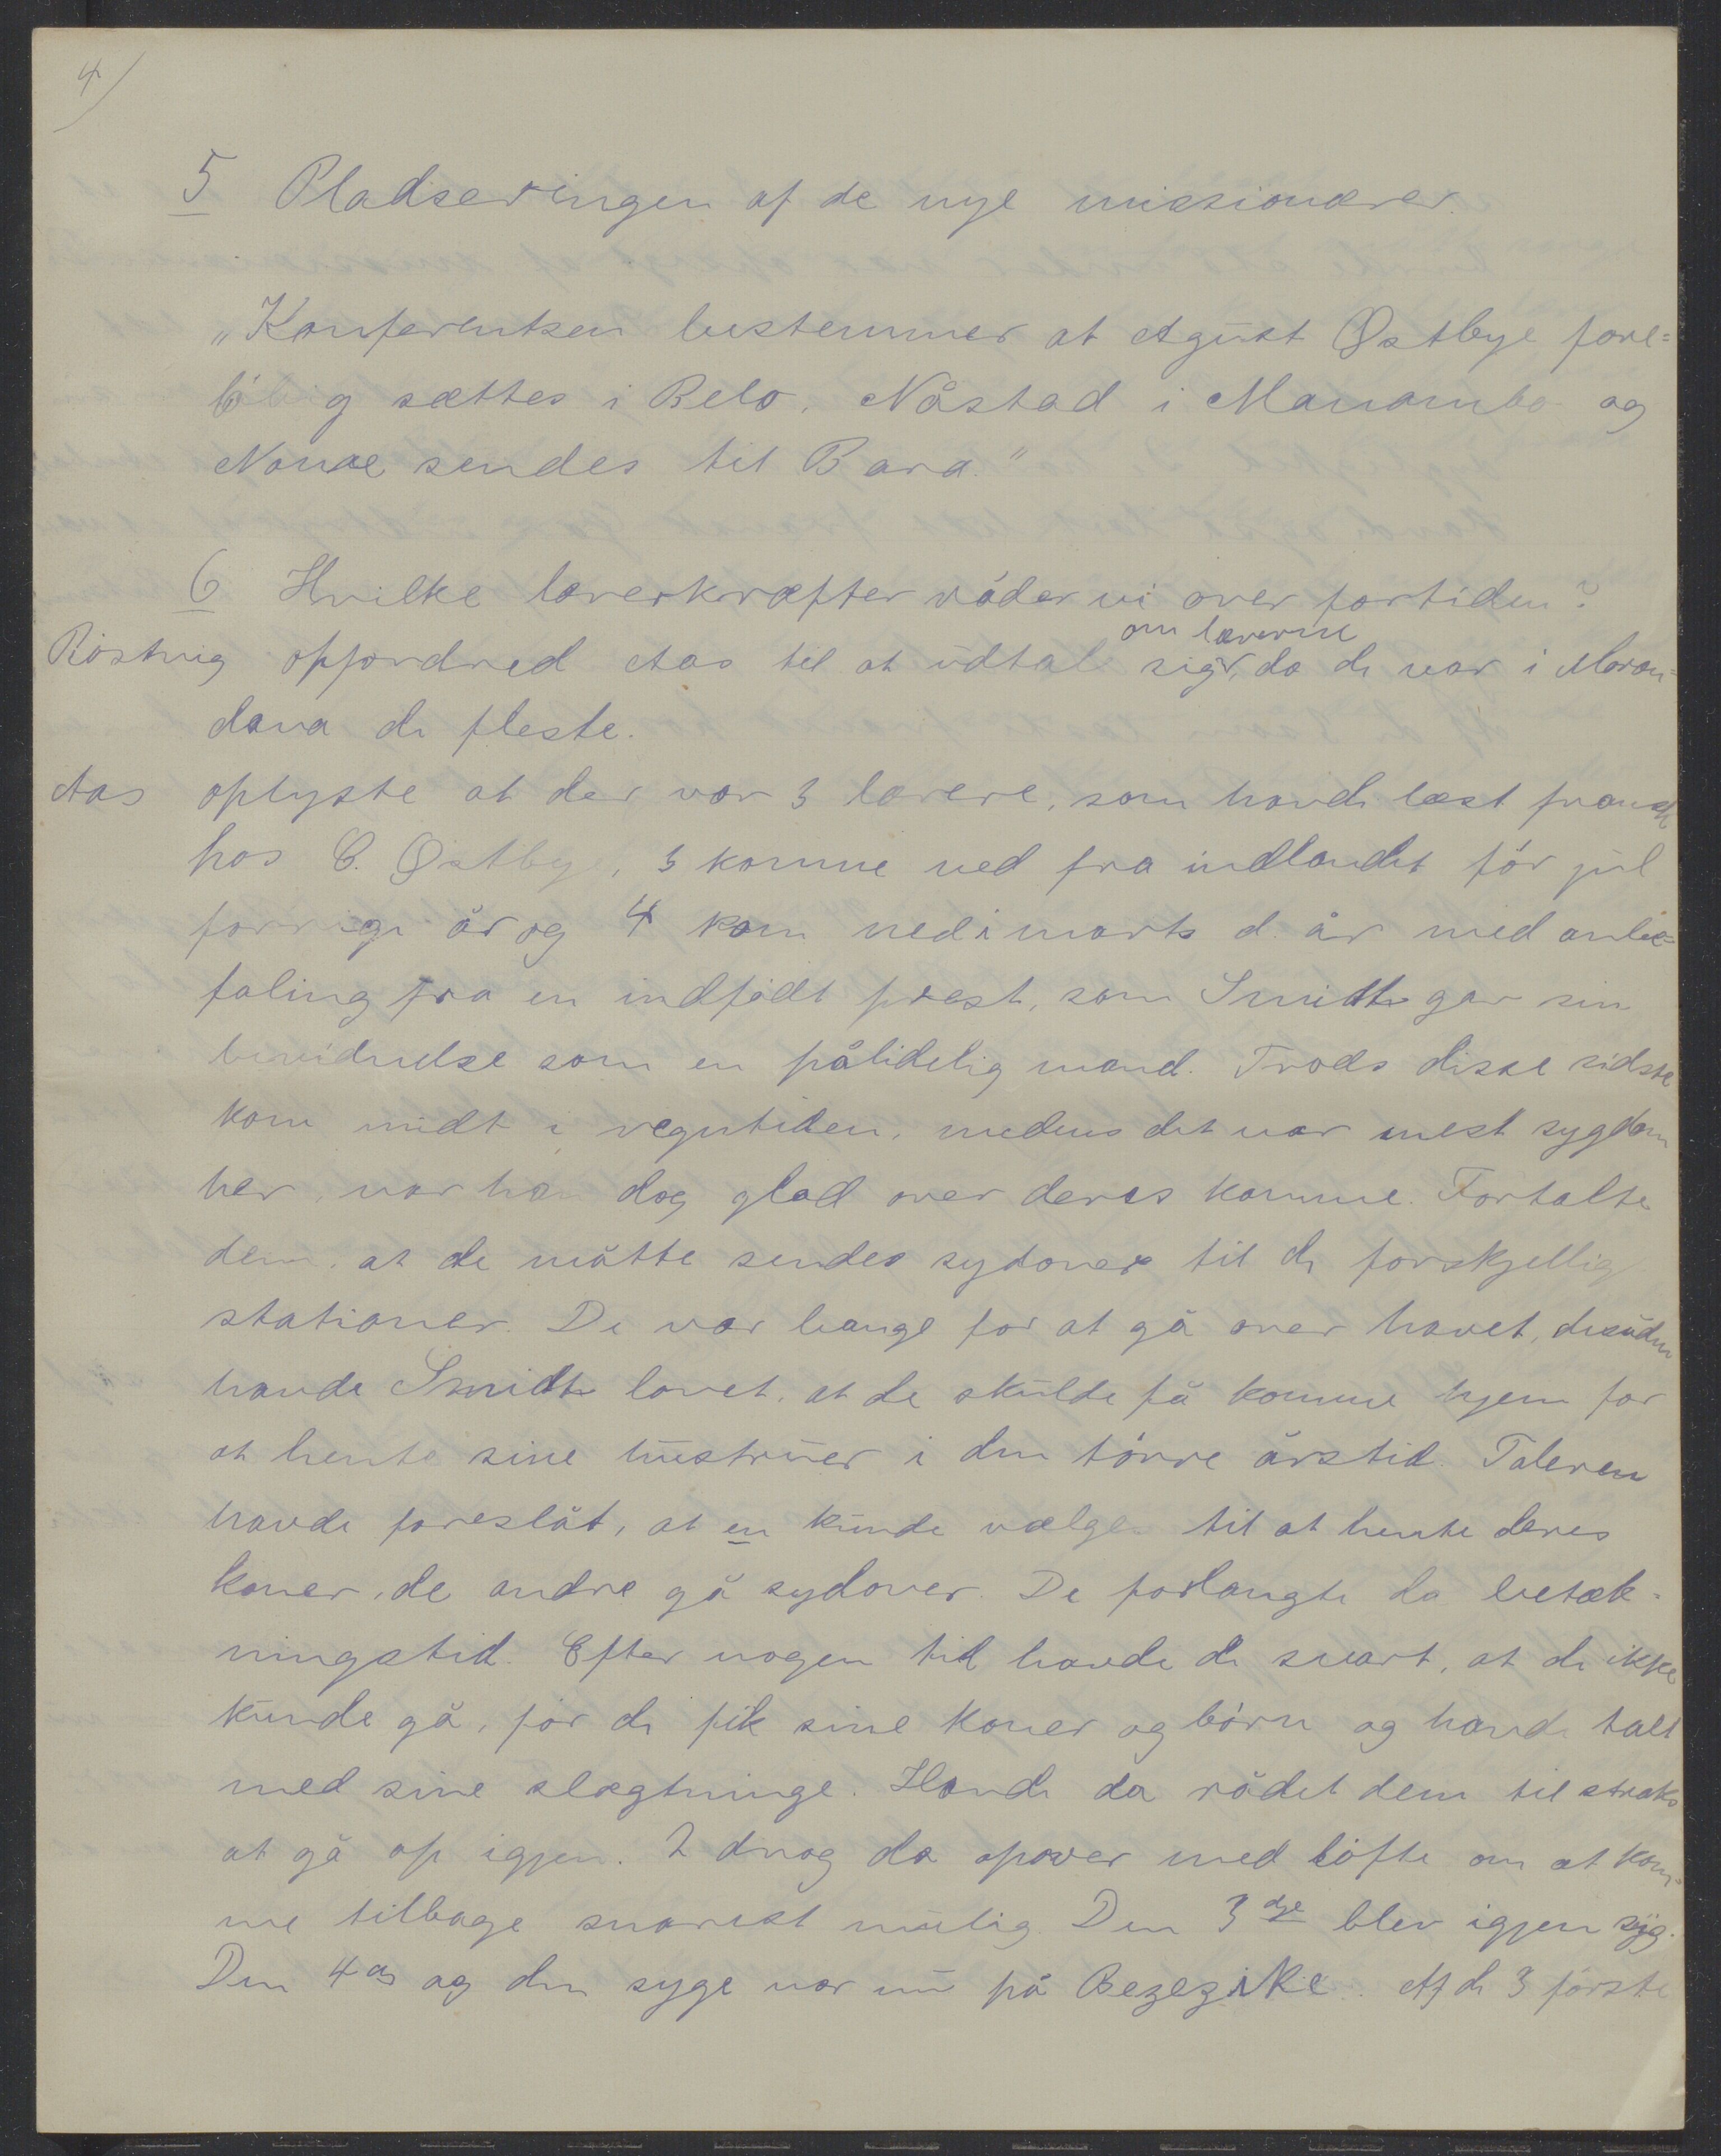 4/
5 Pladseringen af de nye missionærer.
„Konferentsen bestemmer at August Østbye fore=
løbig sættes i Belo, Nåstad i Manambo og
sendes til Bara."
6 Hvilke lærerkræfter råder vi over fortiden?
om lærerne
Röstvig opfordred Aas til at udtale sig, da de var i Moron=
dava de fleste.
Aas oplyste at der var 3 lærere, som havde læst fransk
hos C. Østbye, 3 komme ned fra indlandet för jul
forrige år og 4 kom ned i marts d. år med anbe=
faling fra en indfödt prest, som Smidth gav sin
bevidnelse som en pålidelig mand. Trods disse sidste
kom midt i regntiden, medens det var mest sygdom
her, var han dog glad over deres komme. Fortalte
dem, at de måtte sendes sydover til de forskjellige
stationer. De var bange for at gå over havet, desuden
havde Smidth lovet, at de skulde få komme hjem for
at hente sine hustruer i den törre årstid. Taleren
havde foreslåt, at en kunde vælges til at hente deres
koner, de andre gå sydover. De forlangte da betæk=
ningstid. Efter nogen tid havde de svart, at de ikke
kunde gå, för de fik sine koner og börn og havde talt
med sine slægtninge. Havde da rådet dem til straks
at gå op igjen. 2 drog da opover med löfte om at kom=
me tilbage snarest mulig. Den 3dje blev igjen syg.
Den 4de og den syge var nu på Bezezike. Af de 3 förste